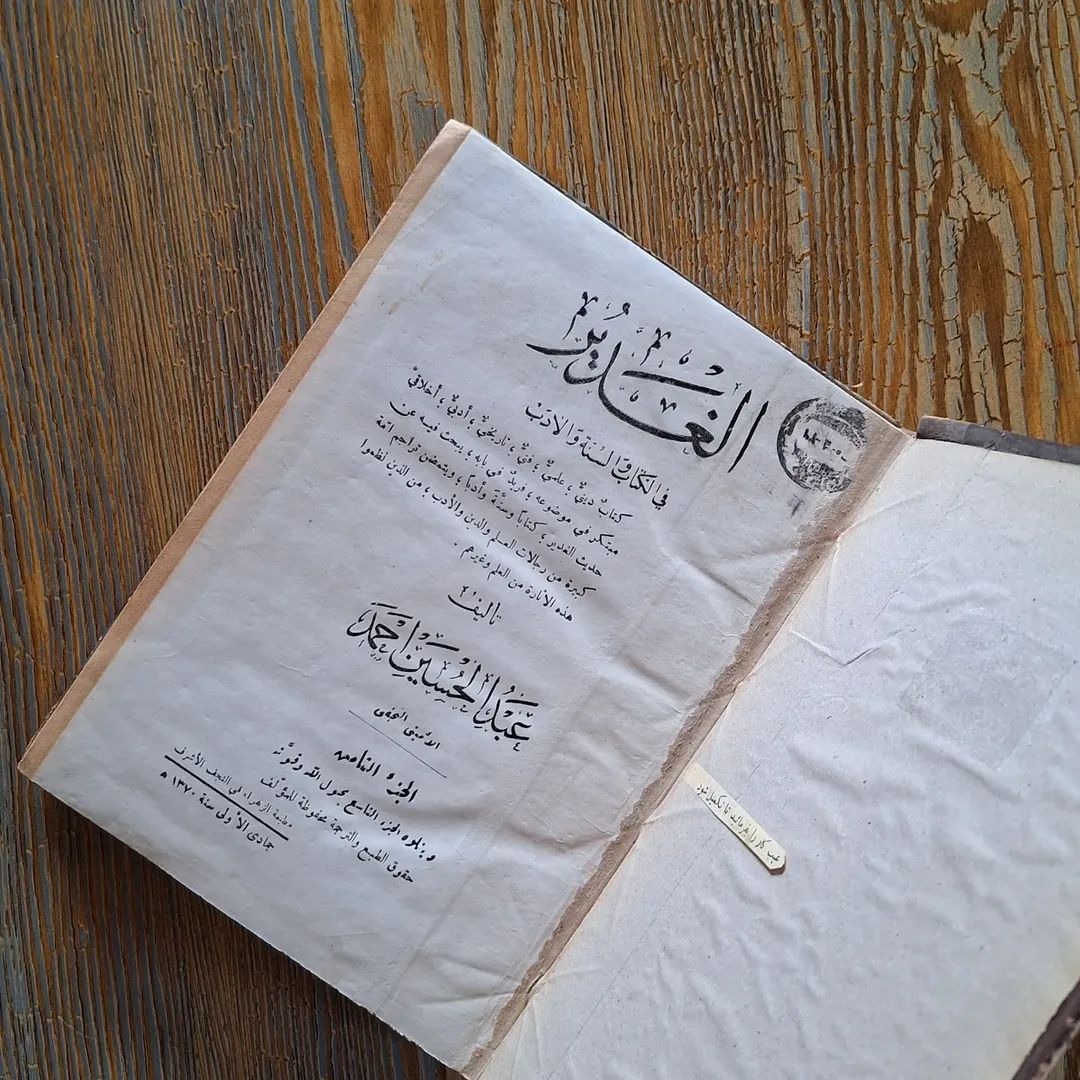 الغدير
في الكتاب والسنة والأدب
كتابٌ دينيٌّ ، علميٌّ ، فنيٌّ ، تاريخيٌّ ، أدبيٌّ ، أخلاقيٌّ
مبتكر في موضوعه ، فريدٌ في بابه ، يبحث فيه عن
حديث الغدير ، كتاباً وسنَّة وأدباً ، ويتضمن تراجم امّة
كبيرة من رجالات العـلم والدين والأدب ، من الذين نظموا
هذه الاثارة من العلم وغيرهم .
تأليف
عبد الحسين احمد
الأميني النجفي
الجزء الثامن
ويتلوه الجزء التاسع بحول الله وقوَّته
حقوق الطبع والترجمة محفوظة للمؤلف
مطبعة الزهراء في النجف الأشرف
جمادى الأولى سنة ١٣٧٠ ه
عیب کار را بفرمائید تا تکمیل شود